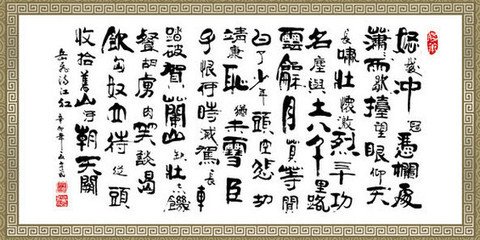 怒髮冲冠憑欄處
瀟雨歇擡望眼仰天
長嘯壯懷激烈三十功
名塵與土八千里路
雲龢月莫等閒
白了少年頭空悲切
靖康恥猶未雪臣
子恨何時滅駕長車
踏破賀蘭山缺壯志饑
餐胡虜肉笑談渴
飲匈奴血待從頭
收拾舊山河朝天闕
岳飛滿江紅 辛卯年